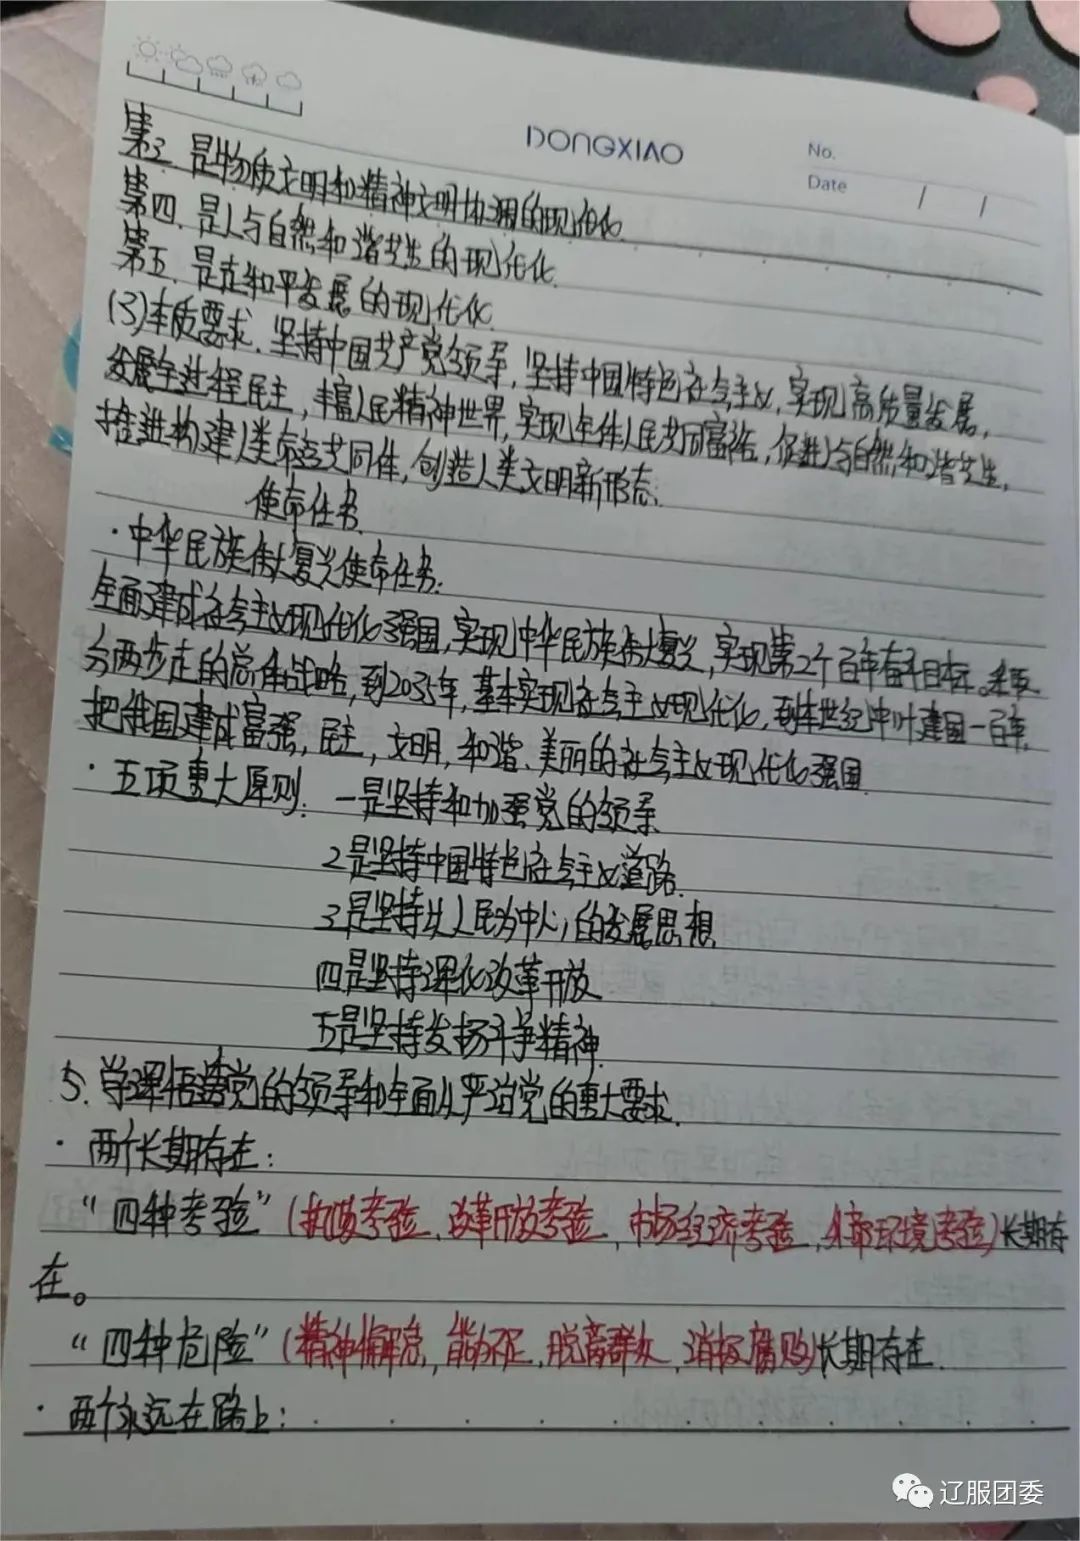 DONGXIAO
No.
Date
第三. 是物质文明和精神文明协调的现代化.
第四. 是人与自然和谐共生的现代化.
第五. 是走和平发展的现代化.
(3)本质要求. 坚持中国共产党领导, 坚持中国特色社会主义, 实现高质量发展,
发展全过程民主, 丰富人民精神世界, 实现全体人民共同富裕, 促进人与自然和谐共生,
推进构建人类命运共同体, 创造人类文明新形态.
使命任务.
· 中华民族伟大复兴使命任务:
全面建成社会主义现代化强国, 实现中华民族伟大复兴, 实现第2个百年奋斗目标。采取
分两步走的总体战略, 到2035年, 基本实现社会主义现代化, 到本世纪中叶建国一百年,
把我国建成富强, 民主, 文明, 和谐. 美丽的社会主义现代化强国.
· 五项重大原则. 一是坚持和加强党的领导
2是坚持中国特色社会主义道路.
3是坚持以人民为中心的发展思想.
四是坚持深化改革开放
五是坚持发扬斗争精神.
5. 学深悟透党的领导和全面从严治党的重大要求.
· 两个长期存在:
“四种考验” (执政考验. 改革开放考验, 市场经济考验, 外部环境考验) 长期存
在。
“四种危险” (精神懈怠, 能力不足, 脱离群众, 消极腐败) 长期存在.
· 两个永远在路上:
辽服团委